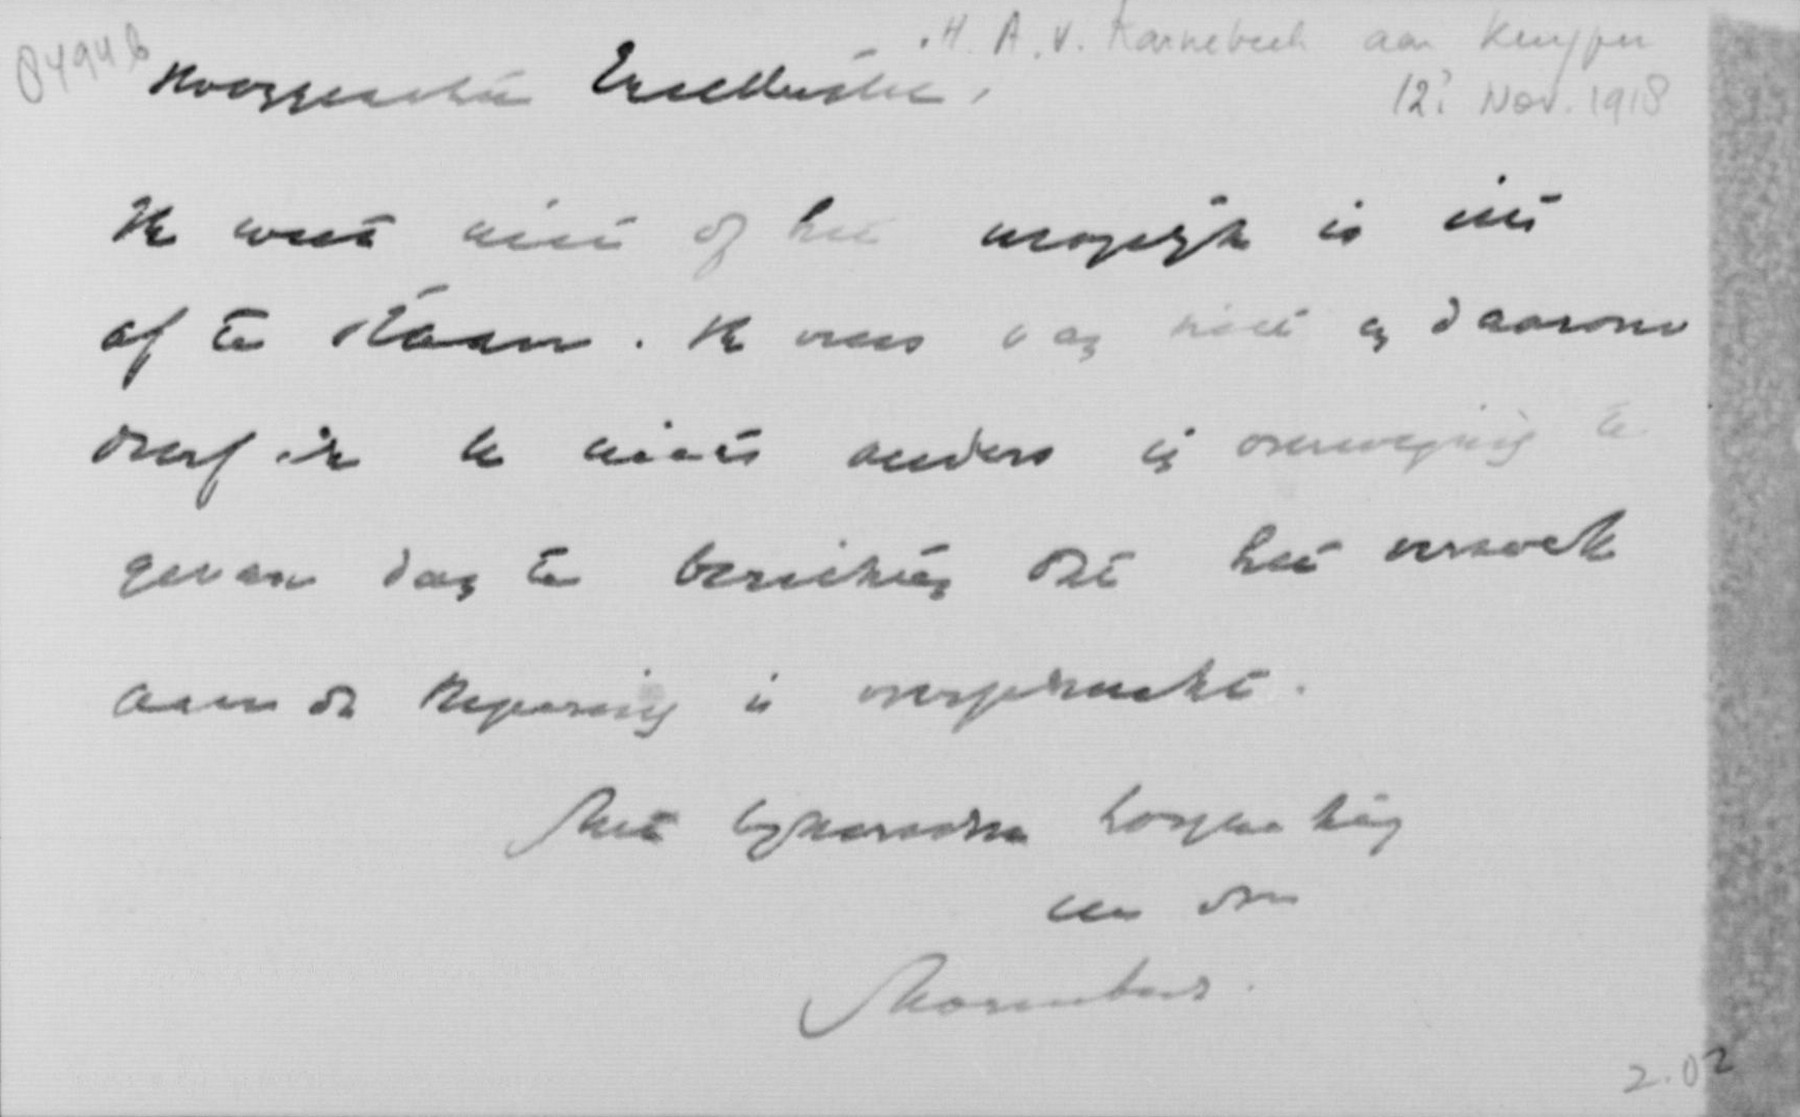 8494b
H. A. v. Karnebeek aan Kuyper
12? Nov. 1918
Hooggeachte Excellentie,
Ik weet niet of het mogelijk is iets
af te staan. Ik vrees van niet en daarom
durf ik U niets anders in overweging te
geven dan te berichten dat het verzoek
aan de Regeering is overgebracht.
Met bijzondere hoogachting
Uw dw
Karnebeek.
2.02